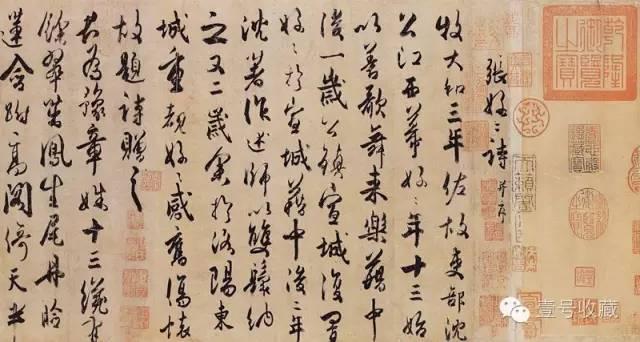 乾隆御覽之寶
張好〻詩 并序
牧大和三年佐故吏部沈
公江西幕好〻年十三始
以善歌舞來樂籍中
後一歲公鎮宣城復置
好〻於宣城籍中後二年
沈著作述師以雙鬟納
之又二歲余於洛陽東
城重覩好〻感舊傷懷
故題詩贈之
君為豫章姝十三纔有
餘翠茁鳳生尾丹臉
蓮含跗高閣倚天半
壹号收藏